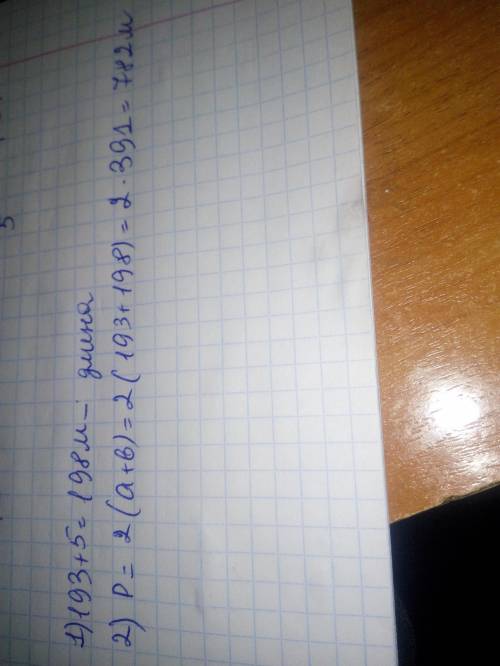 5
1) 193+5=198м- длина
2) P = 2(a+b)=2(193+198)=2·391=782м